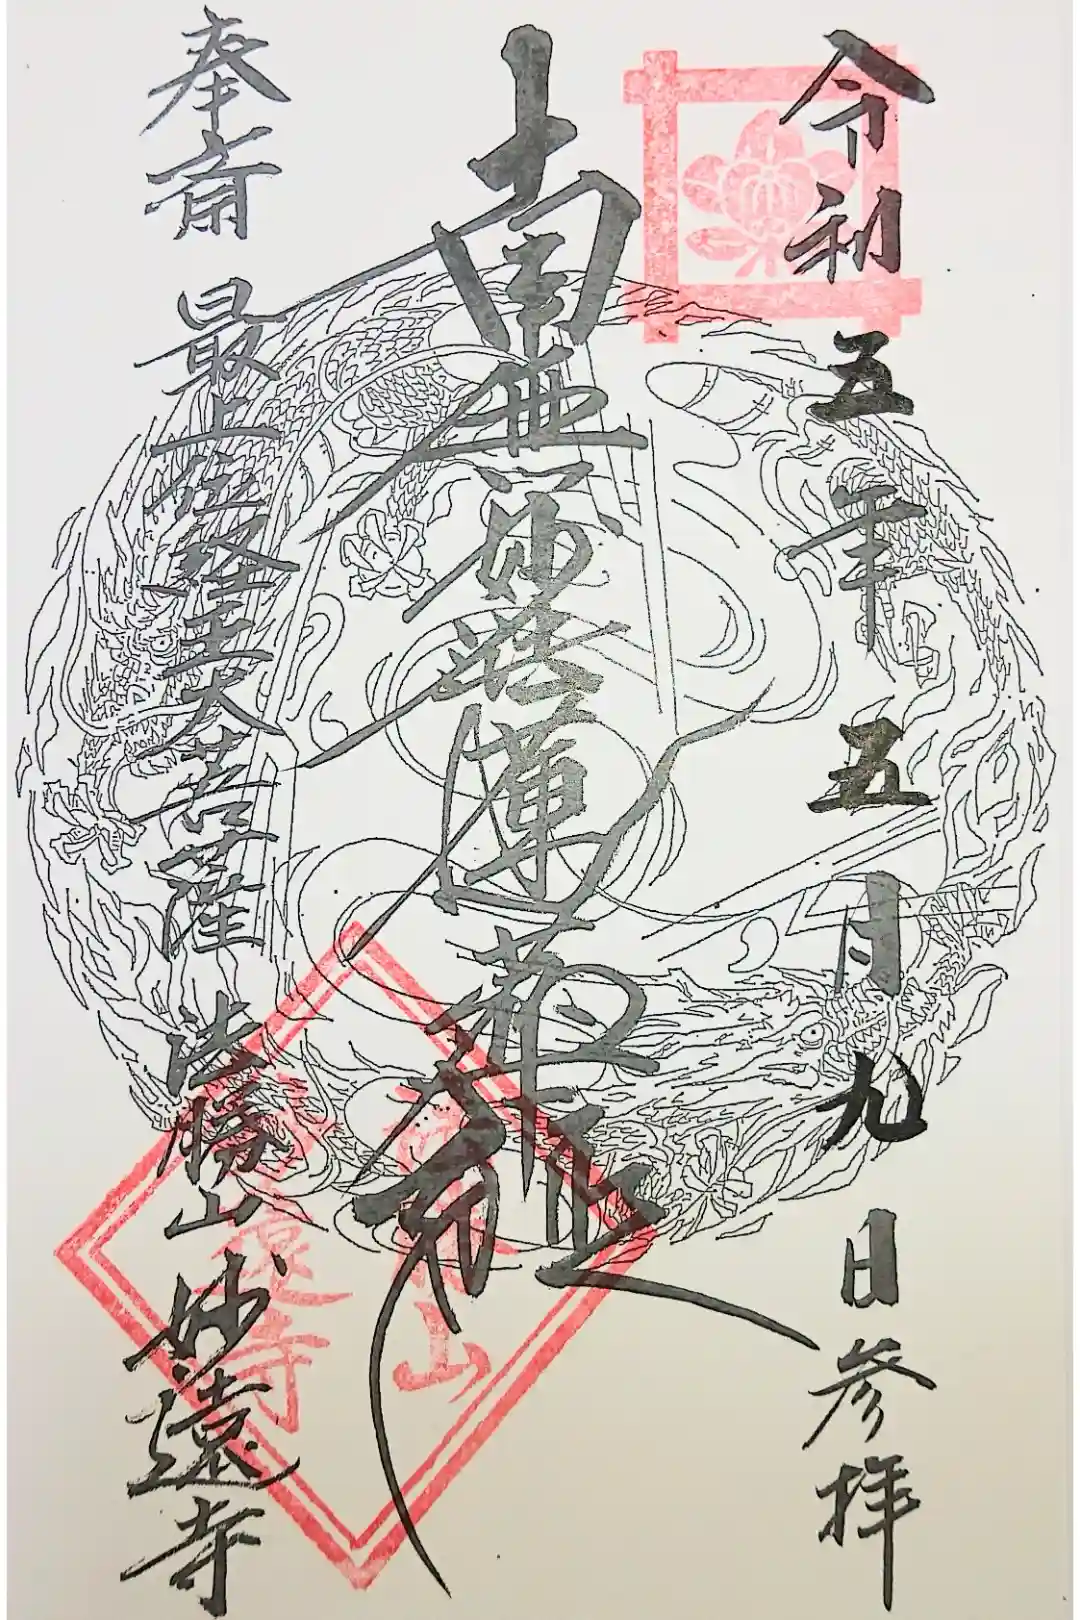 令和五年五月九日参拝
南無妙法蓮華経
奉斎 最上位経王大菩薩 法勝山 妙遠寺
法勝山
妙遠寺